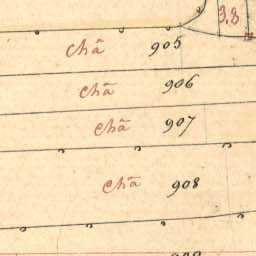 3.8
chã 905
chã 906
chã 907
chã 908